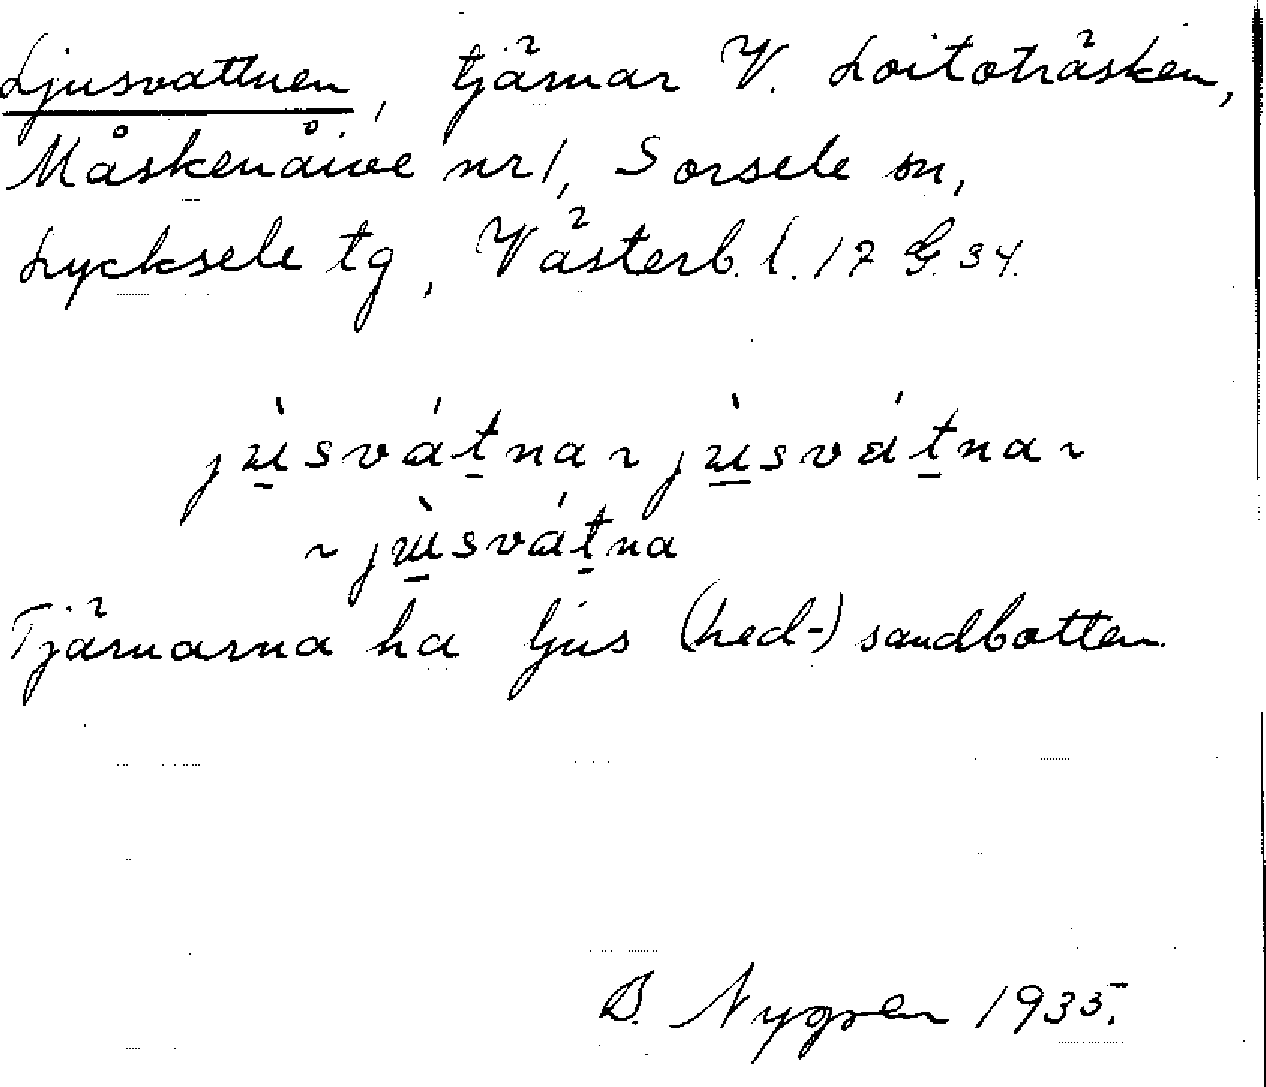 Ljusvattnen, tjärnar V. Loitoträsken,
Måskenåive nr 1, Sorsele sn,
Lycksele tg, Västerb. l. 17 G. 34.
jù̠svát̠na ~ jù̠svát̠na ~
~ jɯ̠̀svát̠na
Tjärnarna ha ljus (hed-) sandbotten
B. Nygren 1935.